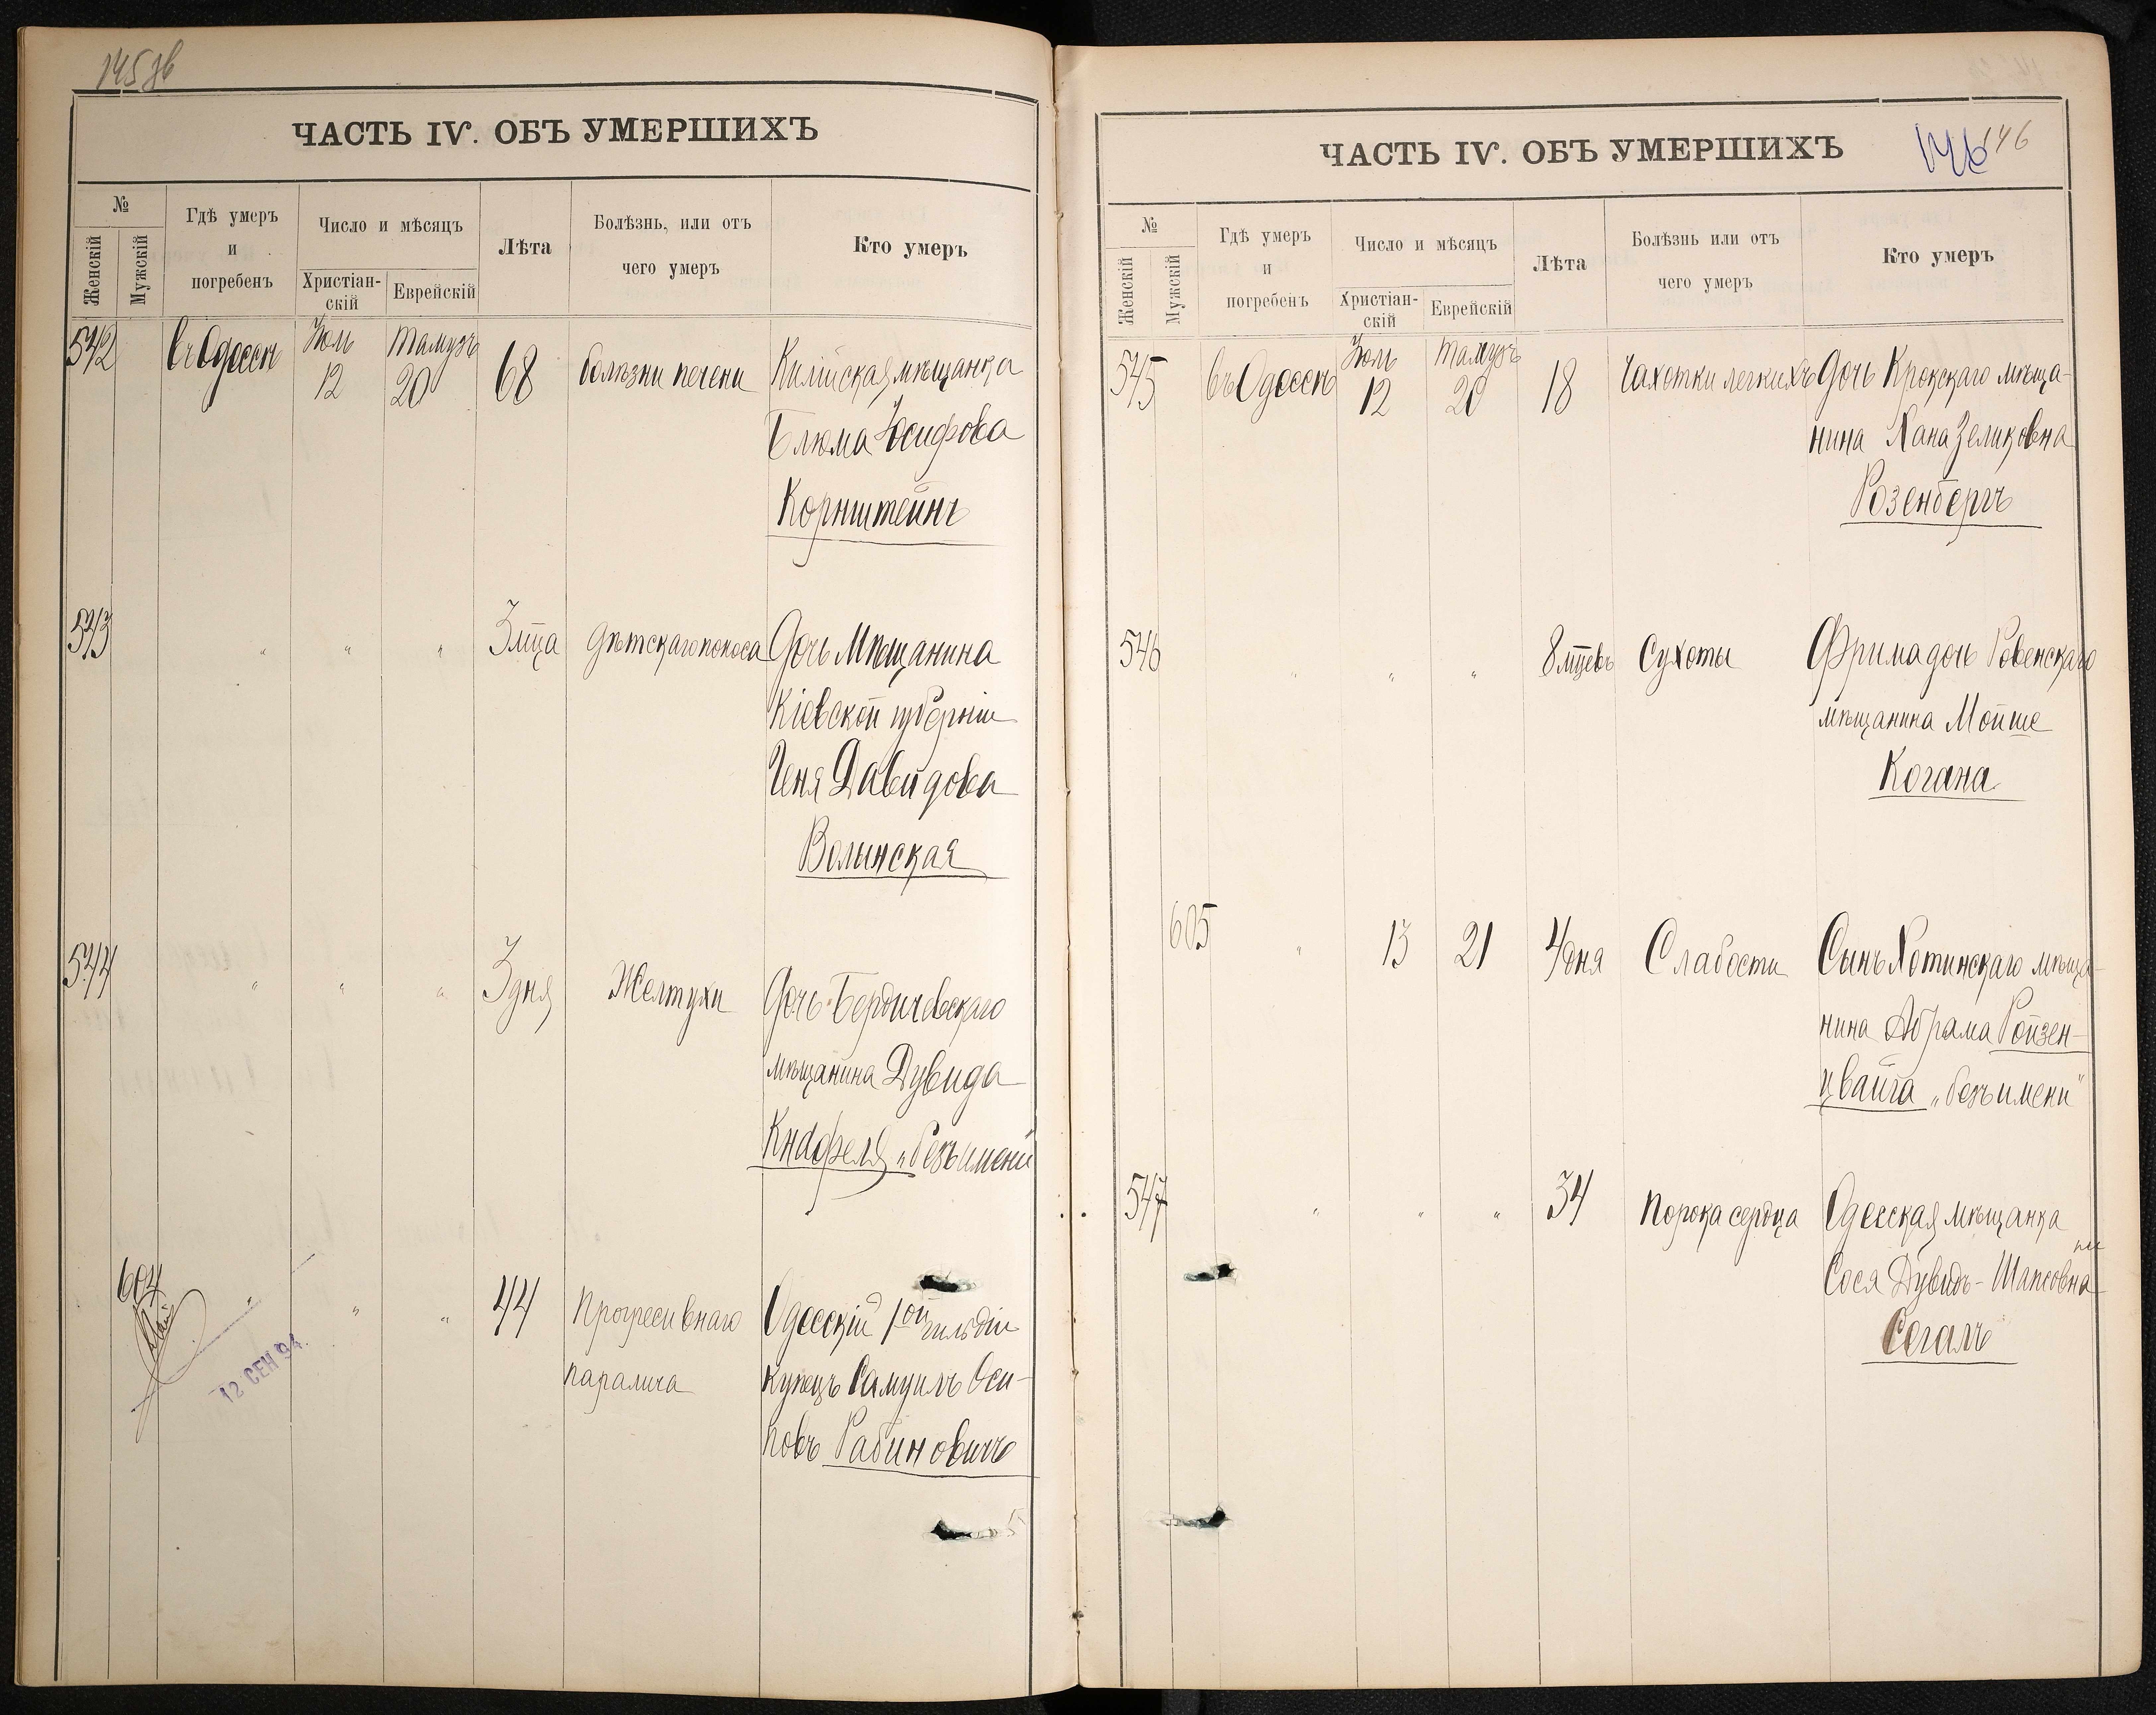 145 зв
ЧАСТЬ IV. ОБЪ УМЕРШИХЪ
№
Женскій
Мужскій
Гдѣ умеръ
и
погребенъ
Число и мѣсяцъ
Христіан-
скій
Еврейскій
Лѣта
Болѣзнь, или отъ
чего умеръ
Кто умеръ
542 въ Одессѣ Іюль 12 Тамузъ 20 68 болѣзни печени Килійская мѣщанка
Блюма Іосифова
Корнштейнъ
543 " " " 3 мца дѣтскаго поноса Дочь Мѣщанина
Кіевской губерніи
Геня Давидова
Волынская
544 " " " 3 дня Желтухи Дочь Бердичевскаго
мѣщанина Дувида
Кнафеля „безъ имени"
604 " " " 44 Прогресивнаго Одесскій 1ой гильдіи
паралича купецъ Самуилъ Оси-
повъ Рабиновичъ
12 СЕН 94
ЧАСТЬ IV. ОБЪ УМЕРШИХЪ
146 146
№
Женскій
Мужскій
Гдѣ умеръ
и
погребенъ
Число и мѣсяцъ
Христіан-
скій
Еврейскій
Лѣта
Болѣзнь или отъ
чего умеръ
Кто умеръ
545 въ Одессѣ Іюль 12 Тамузъ 20 18 Чахотки легкихъ Дочь Крокскаго мѣща-
нина Хана Зеликовна
Розенбергъ
546 " " " 8 мцевъ Сухоты Фрима дочь Ровенскаго
мѣщанина Мойше
Когана
605 " 13 21 4 дня Слабости Сынъ Хотинскаго мѣща-
нина Абрама Ройзен-
цвайга „безъ имени"
547 " " " 34 Порока сердца Одесская мѣщанка
Сося Дувидъ-Шапсовна
Сегалъ